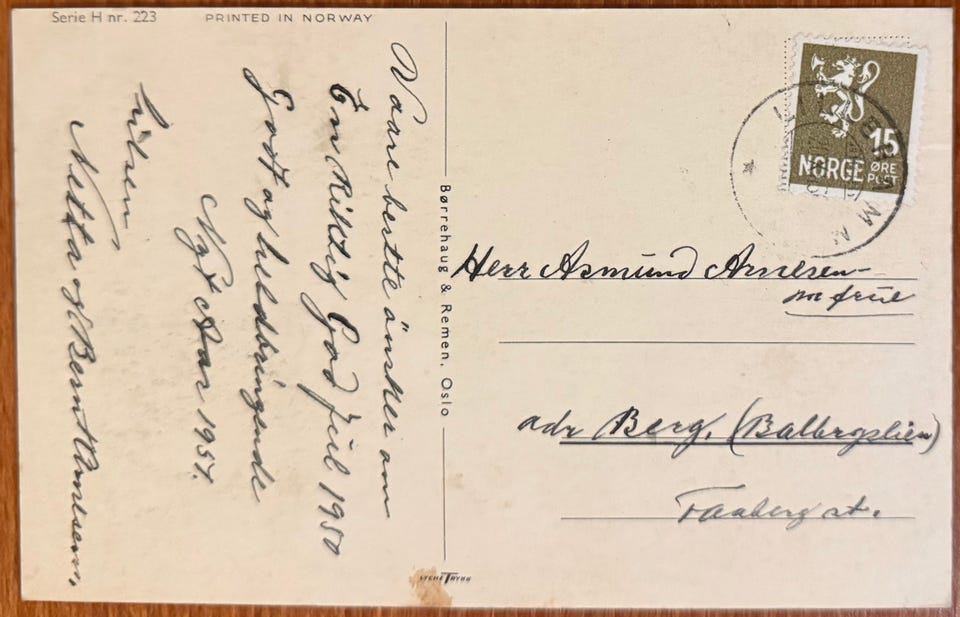 Serie H nr. 223
PRINTED IN NORWAY
Vaare bestte önsker om
En Riktig God Jul 1950
Godt og heldbringende
Nyt Aar 1951.
hilsen
Netta og Bernt Arnesen.
Børrehaug & Remen, Oslo
NORGE
15
ØRE
POST
Herr Asmund Arnesen
m frue
adr Berg. (Balbergslien)
Faaberg st.